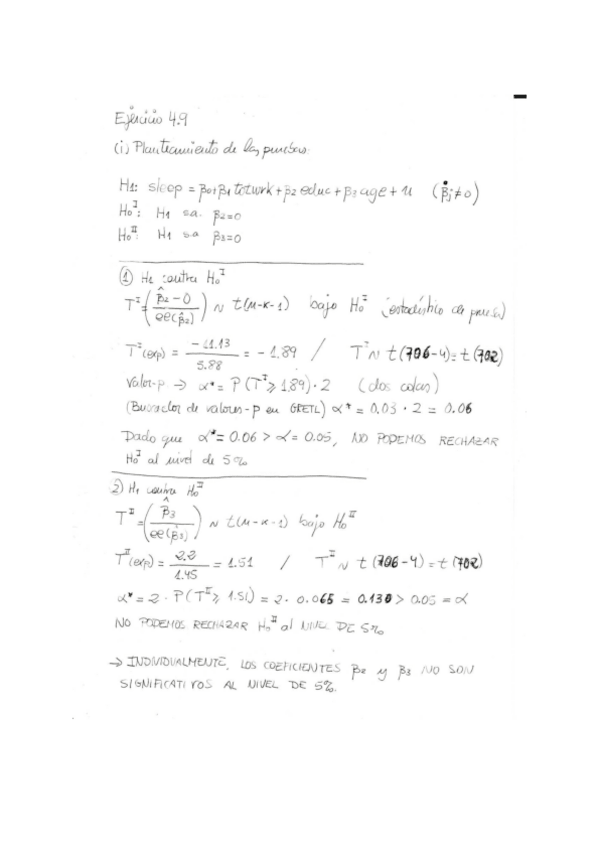 Ejercicio 4.9
(i) Planteamiento de las pruebas:
H1: sleep = β0+β1 totwrk+β2 educ+β3 age+u (βj≠0)
H0^I: H1 s.a. β2=0
H0^II: H1 s.a β3=0
① H1 contra H0^I
T^I=(β̂2-0/ee(β̂2)) ~ t(n-k-1) bajo H0^I (estadístico de prueba)
T^I(exp) = -11.13/5.88 = -1.89 / T^I ~ t(706-4)=t(702)
Valor-p → α*= P(T^I⩾1.89)·2 (dos colas)
(Buscador de valores-p en GRETL) α* = 0.03 · 2 = 0.06
Dado que α*=0.06 > α=0.05, NO PODEMOS RECHAZAR
H0^I al nivel de 5%
2) H1 contra H0^II
T^II=(β̂3/ee(β̂3)) ~ t(n-k-1) bajo H0^II
T^II(exp) = 2.2/1.45 = 1.51 / T^II ~ t(706-4)=t(702)
α*= 2 · P(T^II⩾1.51) = 2 · 0.065 = 0.130 > 0.05 = α
NO PODEMOS RECHAZAR H0^II al NIVEL DE 5%
→ INDIVIDUALMENTE, LOS COEFICIENTES β2 y β3 NO SON
SIGNIFICATIVOS AL NIVEL DE 5%.